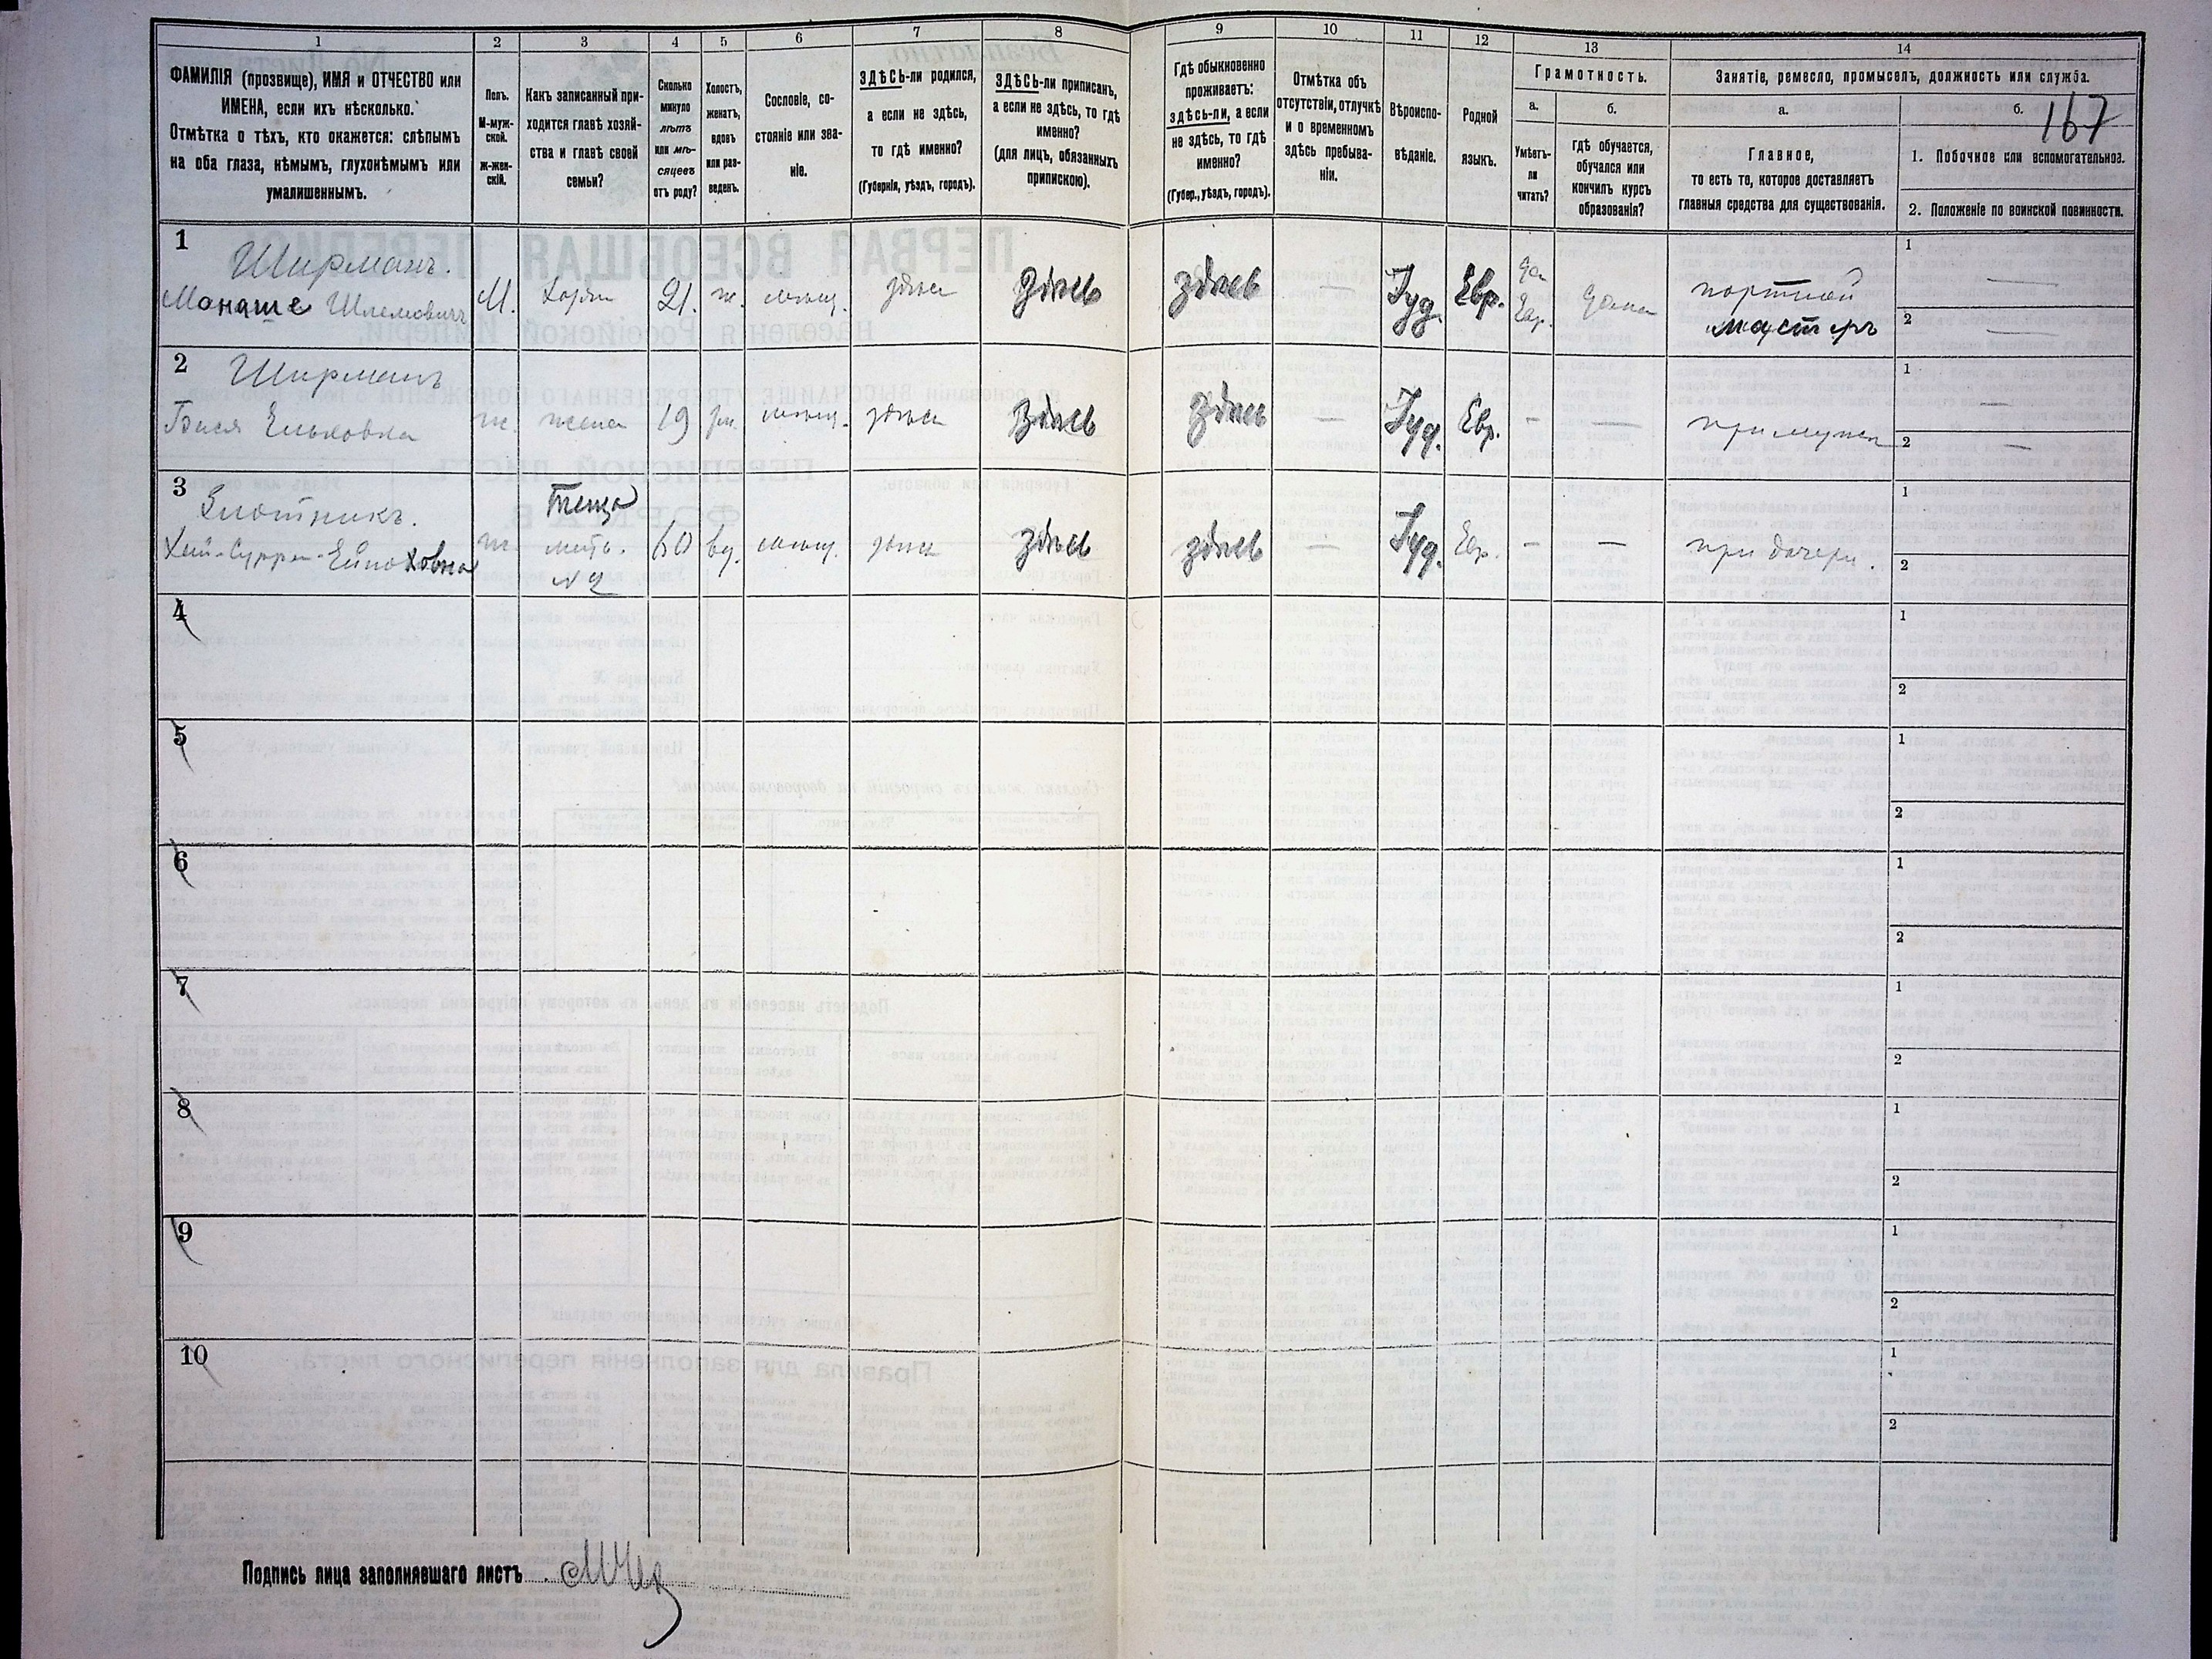 1 2 3 4 5 6 7 8 9 10 11 12 13 14
ФАМИЛІЯ (прозвище), ИМЯ и ОТЧЕСТВО или
ИМЕНА, если ихъ нѣсколько.
Отмѣтка о тѣхъ, кто окажется: слѣпымъ
на оба глаза, нѣмымъ, глухонѣмымъ или
умалишеннымъ.
Полъ.
М-муж-
ской.
Ж-жен-
скій.
Какъ записанный при-
ходится главѣ хозяй-
ства и главѣ своей
семьи?
Сколько
минуло
лѣтъ
или мѣ-
сяцевъ
отъ роду?
Холостъ,
женатъ,
вдовъ
или раз-
веденъ.
Сословіе, со-
стояніе или зва-
ніе.
ЗДѢСЬ-ли родился,
а если не здѣсь,
то гдѣ именно?
(Губернія, уѣздъ, городъ).
ЗДѢСЬ-ли приписанъ,
а если не здѣсь, то гдѣ
именно?
(для лицъ, обязанныхъ
припискою).
Гдѣ обыкновенно
проживаетъ:
здѣсь-ли, а если
не здѣсь, то гдѣ
именно?
(Губер., уѣздъ, городъ).
Отмѣтка объ
отсутствіи, отлучкѣ
и о временномъ
здѣсь пребыва-
ніи.
Вѣроиспо-
вѣданіе.
Родной
языкъ.
Грамотность.
а.
Умѣетъ-
ли
читать?
б.
гдѣ обучается,
обучался или
кончилъ курсъ
образованія?
Занятіе, ремесло, промыселъ, должность или служба.
а.
Главное,
то есть то, которое доставляетъ
главныя средства для существованія.
б.
167
1. Побочное или вспомогательное.
2. Положеніе по воинской повинности.
1
Ширманъ.
Манаше Шлемовичъ
М.
21.
ж.
мѣщ.
здѣсь
Здѣсь
здѣсь
—
Іуд.
Евр.
да
Евр.
дома
портной
мастеръ
1 —
2 —
2
Ширманъ
Бася
ж.
жена
19
мѣщ.
здѣсь
Здѣсь
здѣсь
—
Іуд.
Евр.
—
—
при мужѣ
1 —
2 —
3
ж.
Теща
мать
№ 2
60
вд.
мѣщ.
здѣсь
здѣсь
здѣсь
—
Іуд.
Евр.
—
—
при дочери.
1
2
4
1
2
5
1
2
6
1
2
7
1
2
8
1
2
9
1
2
10
1
2
Подпись лица заполнявшаго листъ